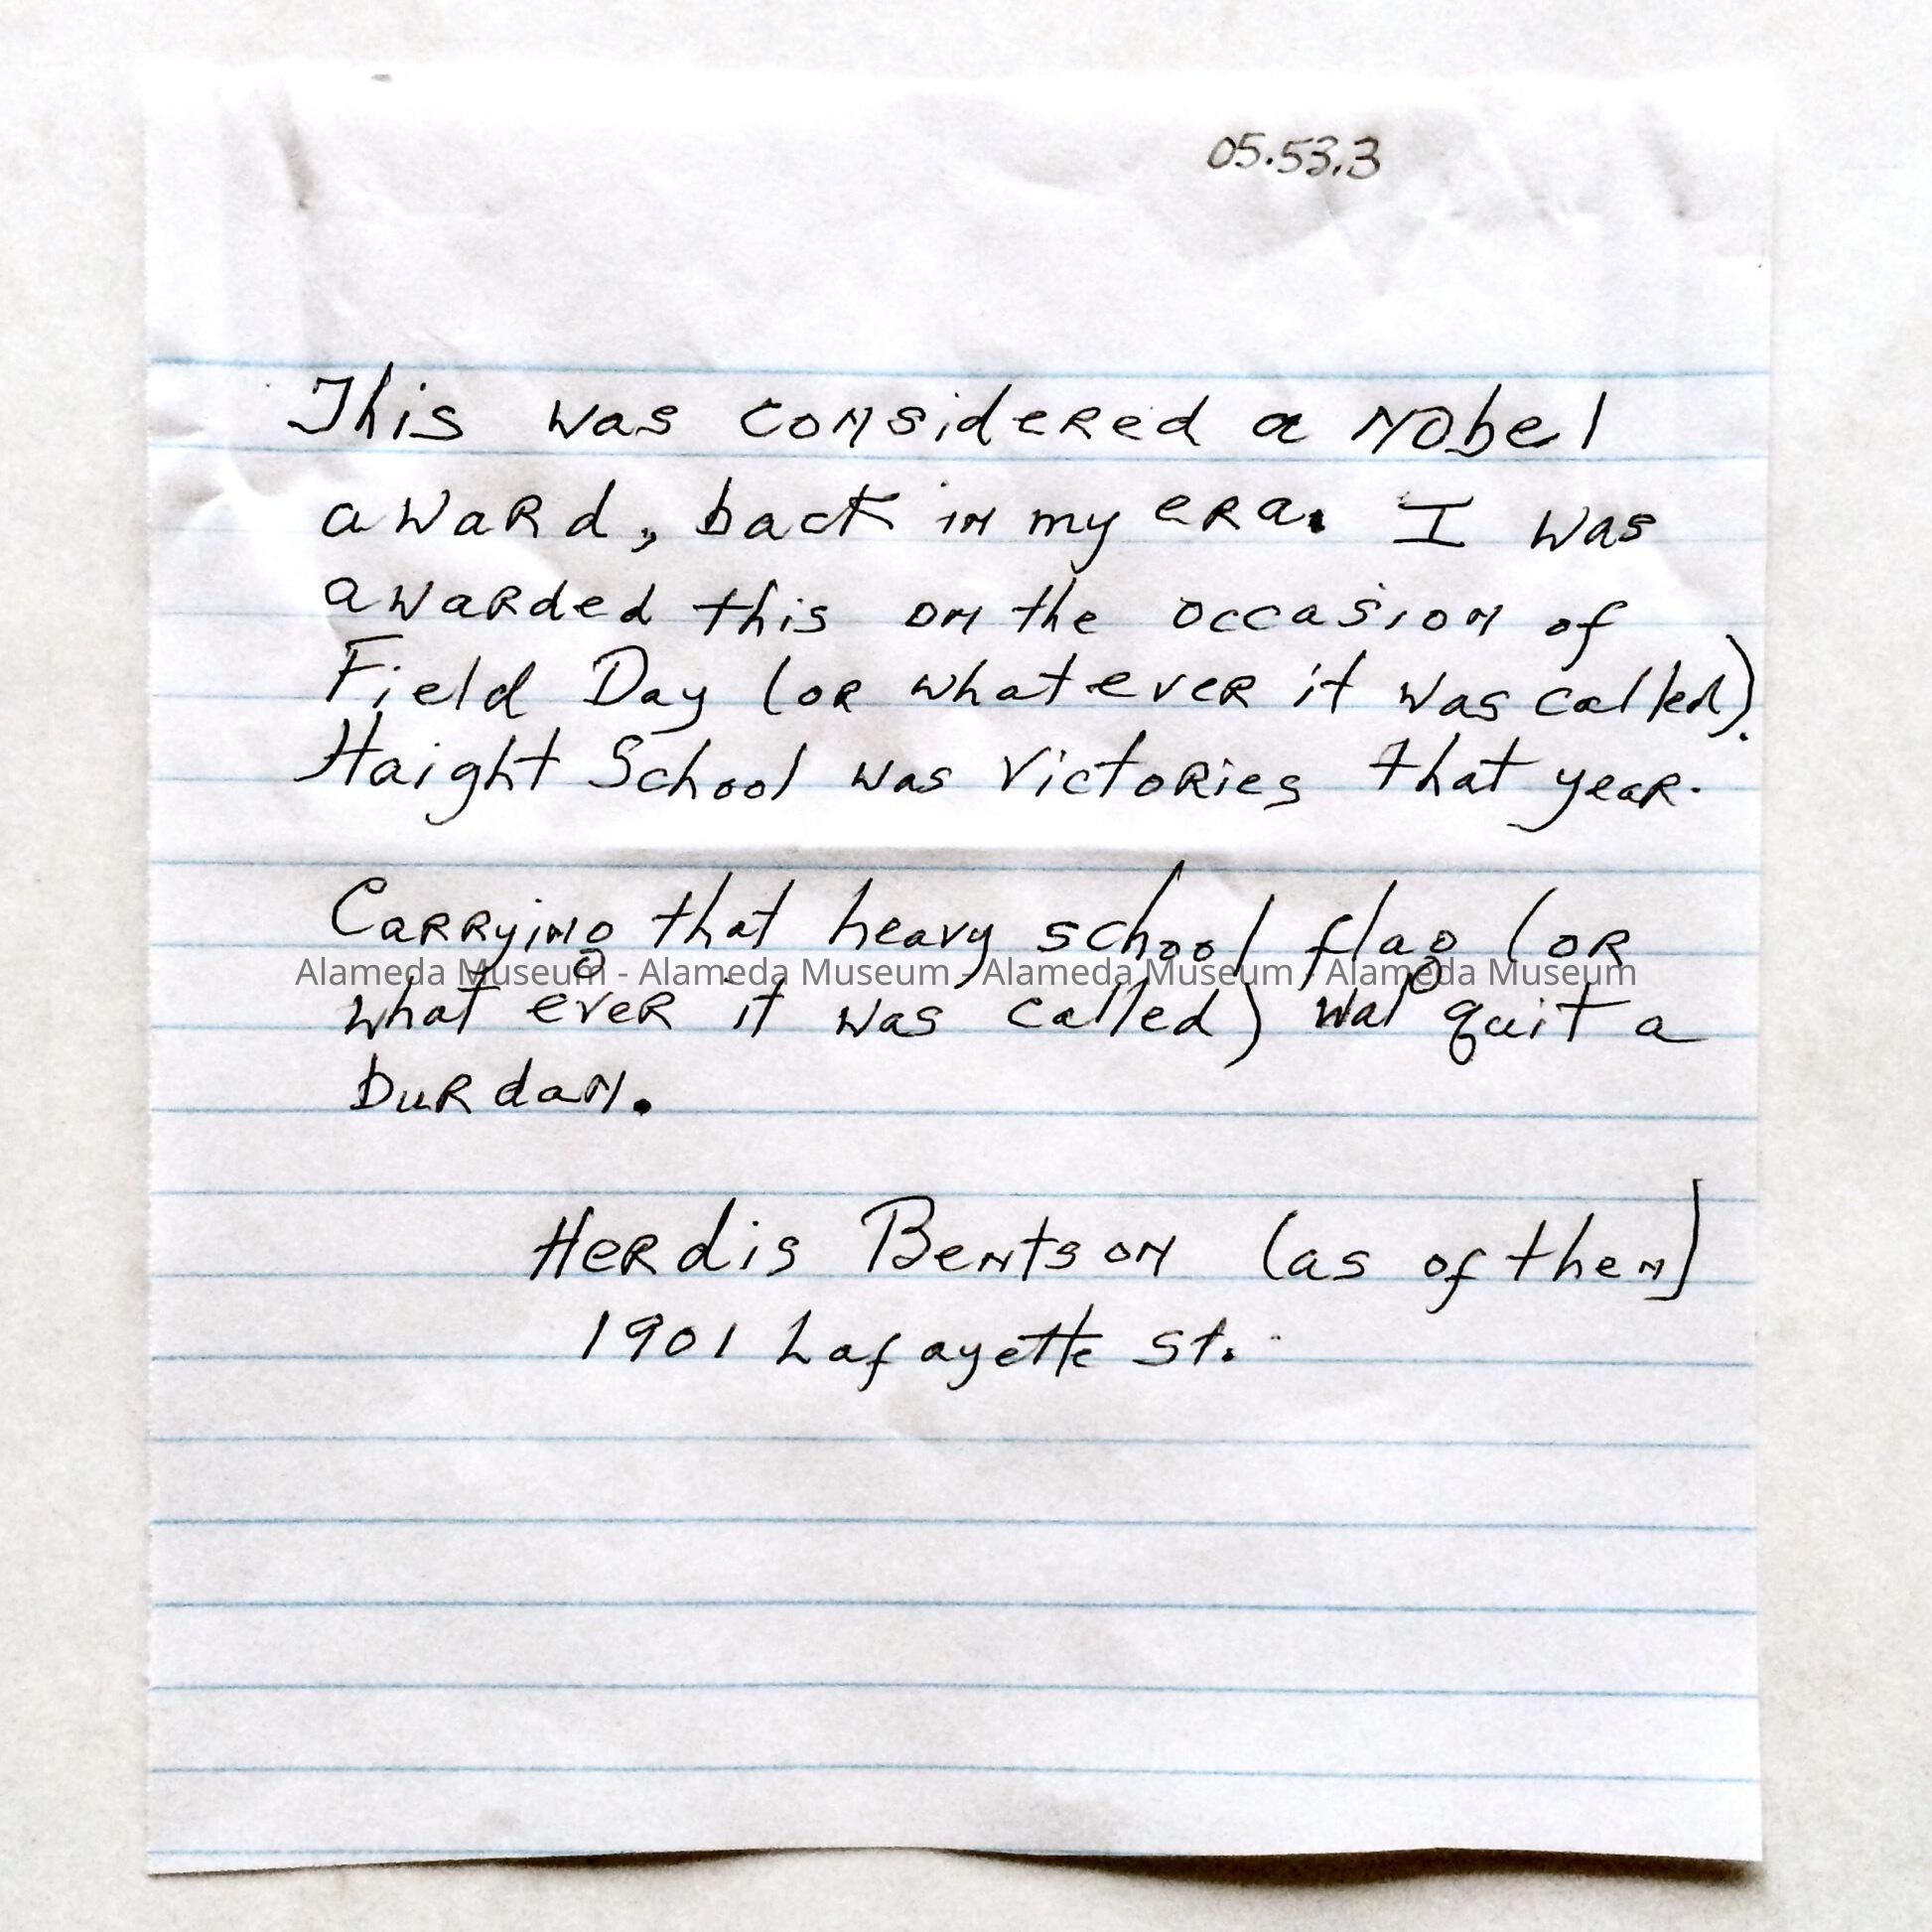 05.53.3
This was considered a Nobel
award, back in my era. I was
awarded this on the occasion of
Field Day (or whatever it was called).
Haight School was Victories that year.
Carrying that heavy school flag (or
Alameda Museum - Alameda Museum - Alameda Museum - Alameda Museum
what ever it was called) was quit a
burdan.
Herdis Bentson (as of then)
1901 Lafayette St.